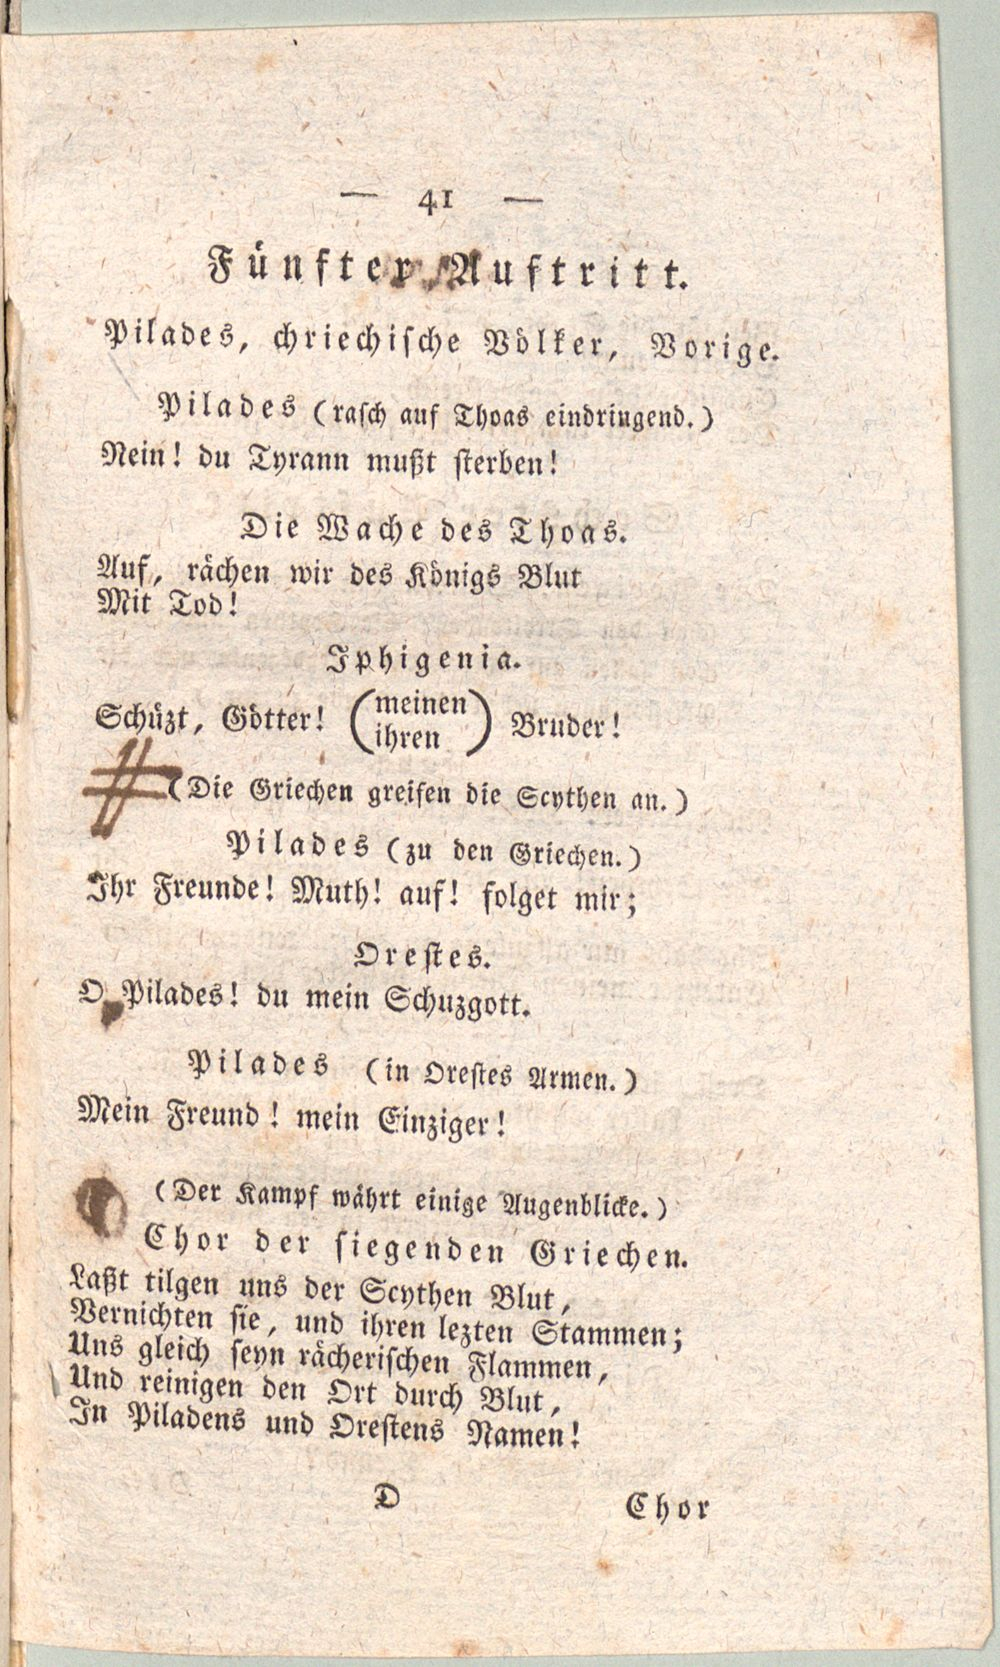 — 41 —
Fünfter Auftritt.
Pilades, chriechische Völker, Vorige.
Pilades (rasch auf Thoas eindringend.)
Nein! du Tyrann mußt sterben!
Die Wache des Thoas.
Auf, rächen wir des Königs Blut
Mit Tod!
Iphigenia.
Schüzt, Götter! (meinen ihren) Bruder!
(Die Griechen greifen die Scythen an.)
Pilades (zu den Griechen.)
Ihr Freunde! Muth! auf! folget mir;
Orestes.
O Pilades! du mein Schuzgott.
Pilades (in Orestes Armen.)
Mein Freund! mein Einziger!
(Der Kampf währt einige Augenblicke.)
Chor der siegenden Griechen.
Laßt tilgen uns der Scythen Blut,
Vernichten sie, und ihren lezten Stammen;
Uns gleich seyn rächerischen Flammen,
Und reinigen den Ort durch Blut,
In Piladens und Orestens Namen!
D
Chor